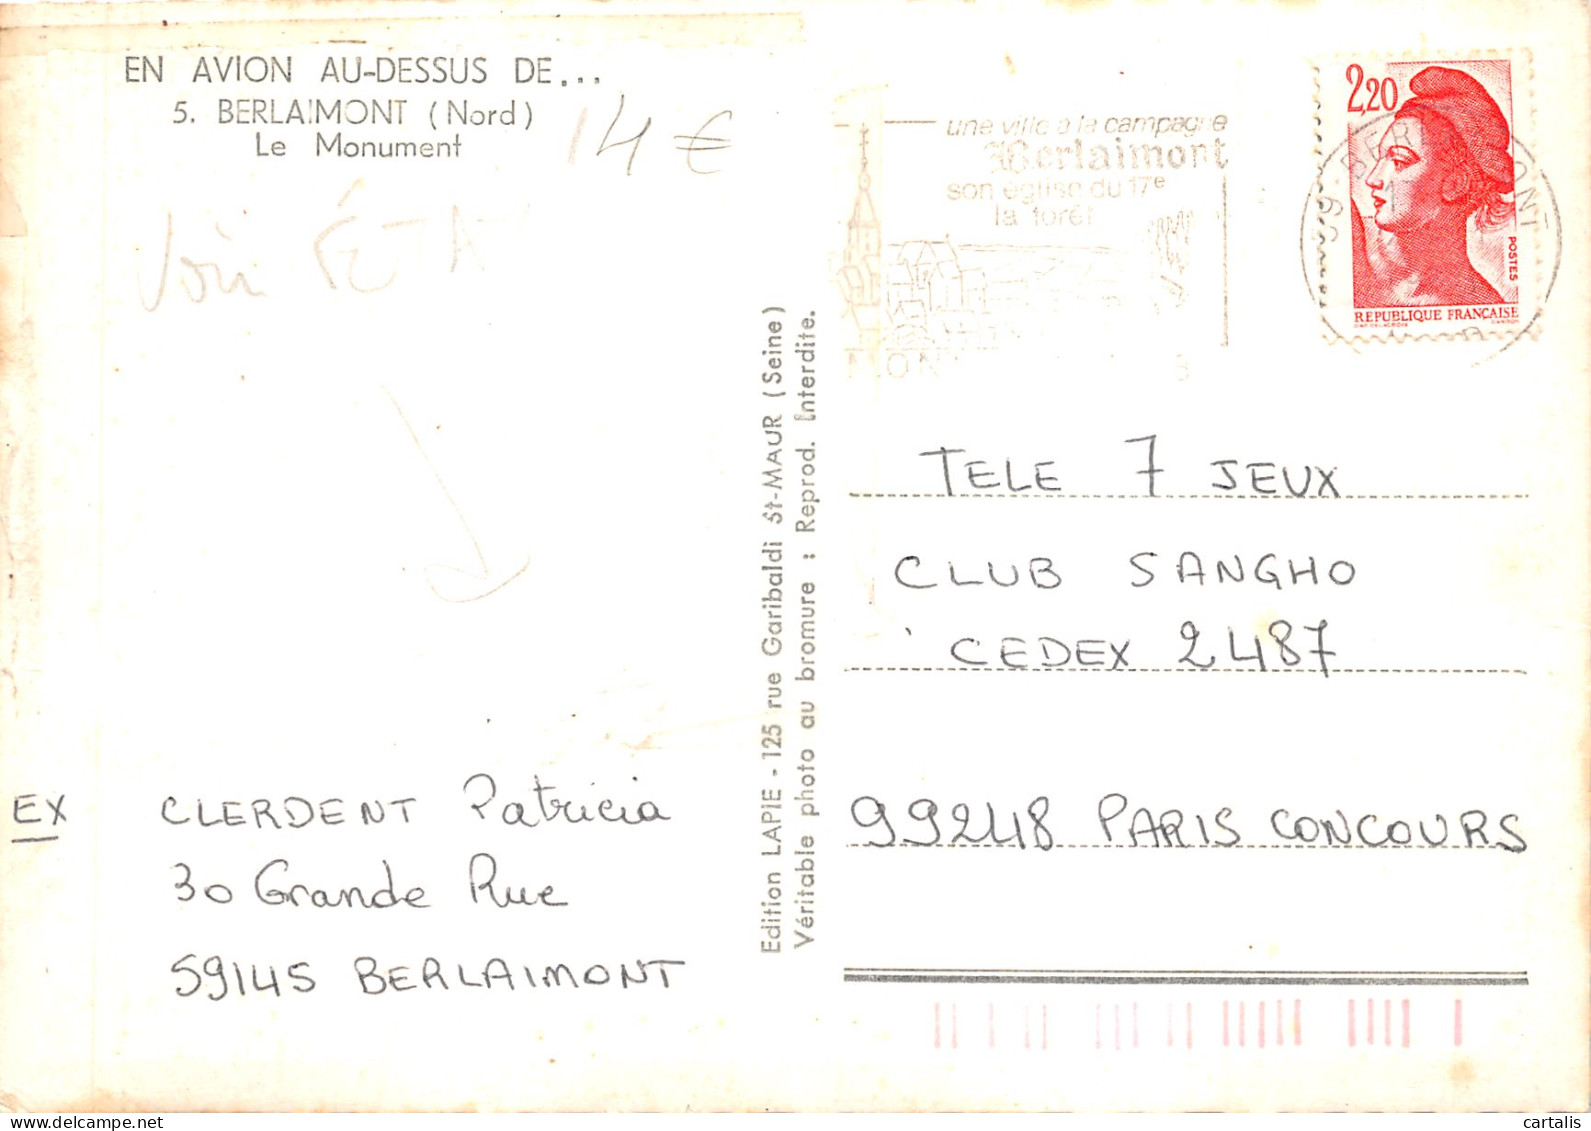 EN AVION AU-DESSUS DE...
5. BERLAIMONT (Nord)
Le Monument
14 €
Voir ÉTAT
EX
CLERDENT Patricia
30 Grande Rue
59145 BERLAIMONT
Edition LAPIE - 125 rue Garibaldi St-MAUR (Seine)
Véritable photo au bromure : Reprod. Interdite.
une ville à la campagne
Berlaimont
son église du 17e
la forêt
2,20
POSTES
REPUBLIQUE FRANÇAISE
TELE 7 JEUX
CLUB SANGHO
CEDEX 2487
99248 PARIS CONCOURS
cartalis